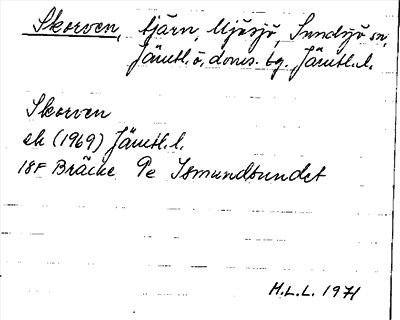 Skorven, tjärn, Mjösjö, Sundsjö sn,
Jämtl. ö. doms. tg. Jämtl. l.
Skorven
ek (1969) Jämtl. l.
18F Bräcke Pe Ismundsundet
M.L.L. 1971